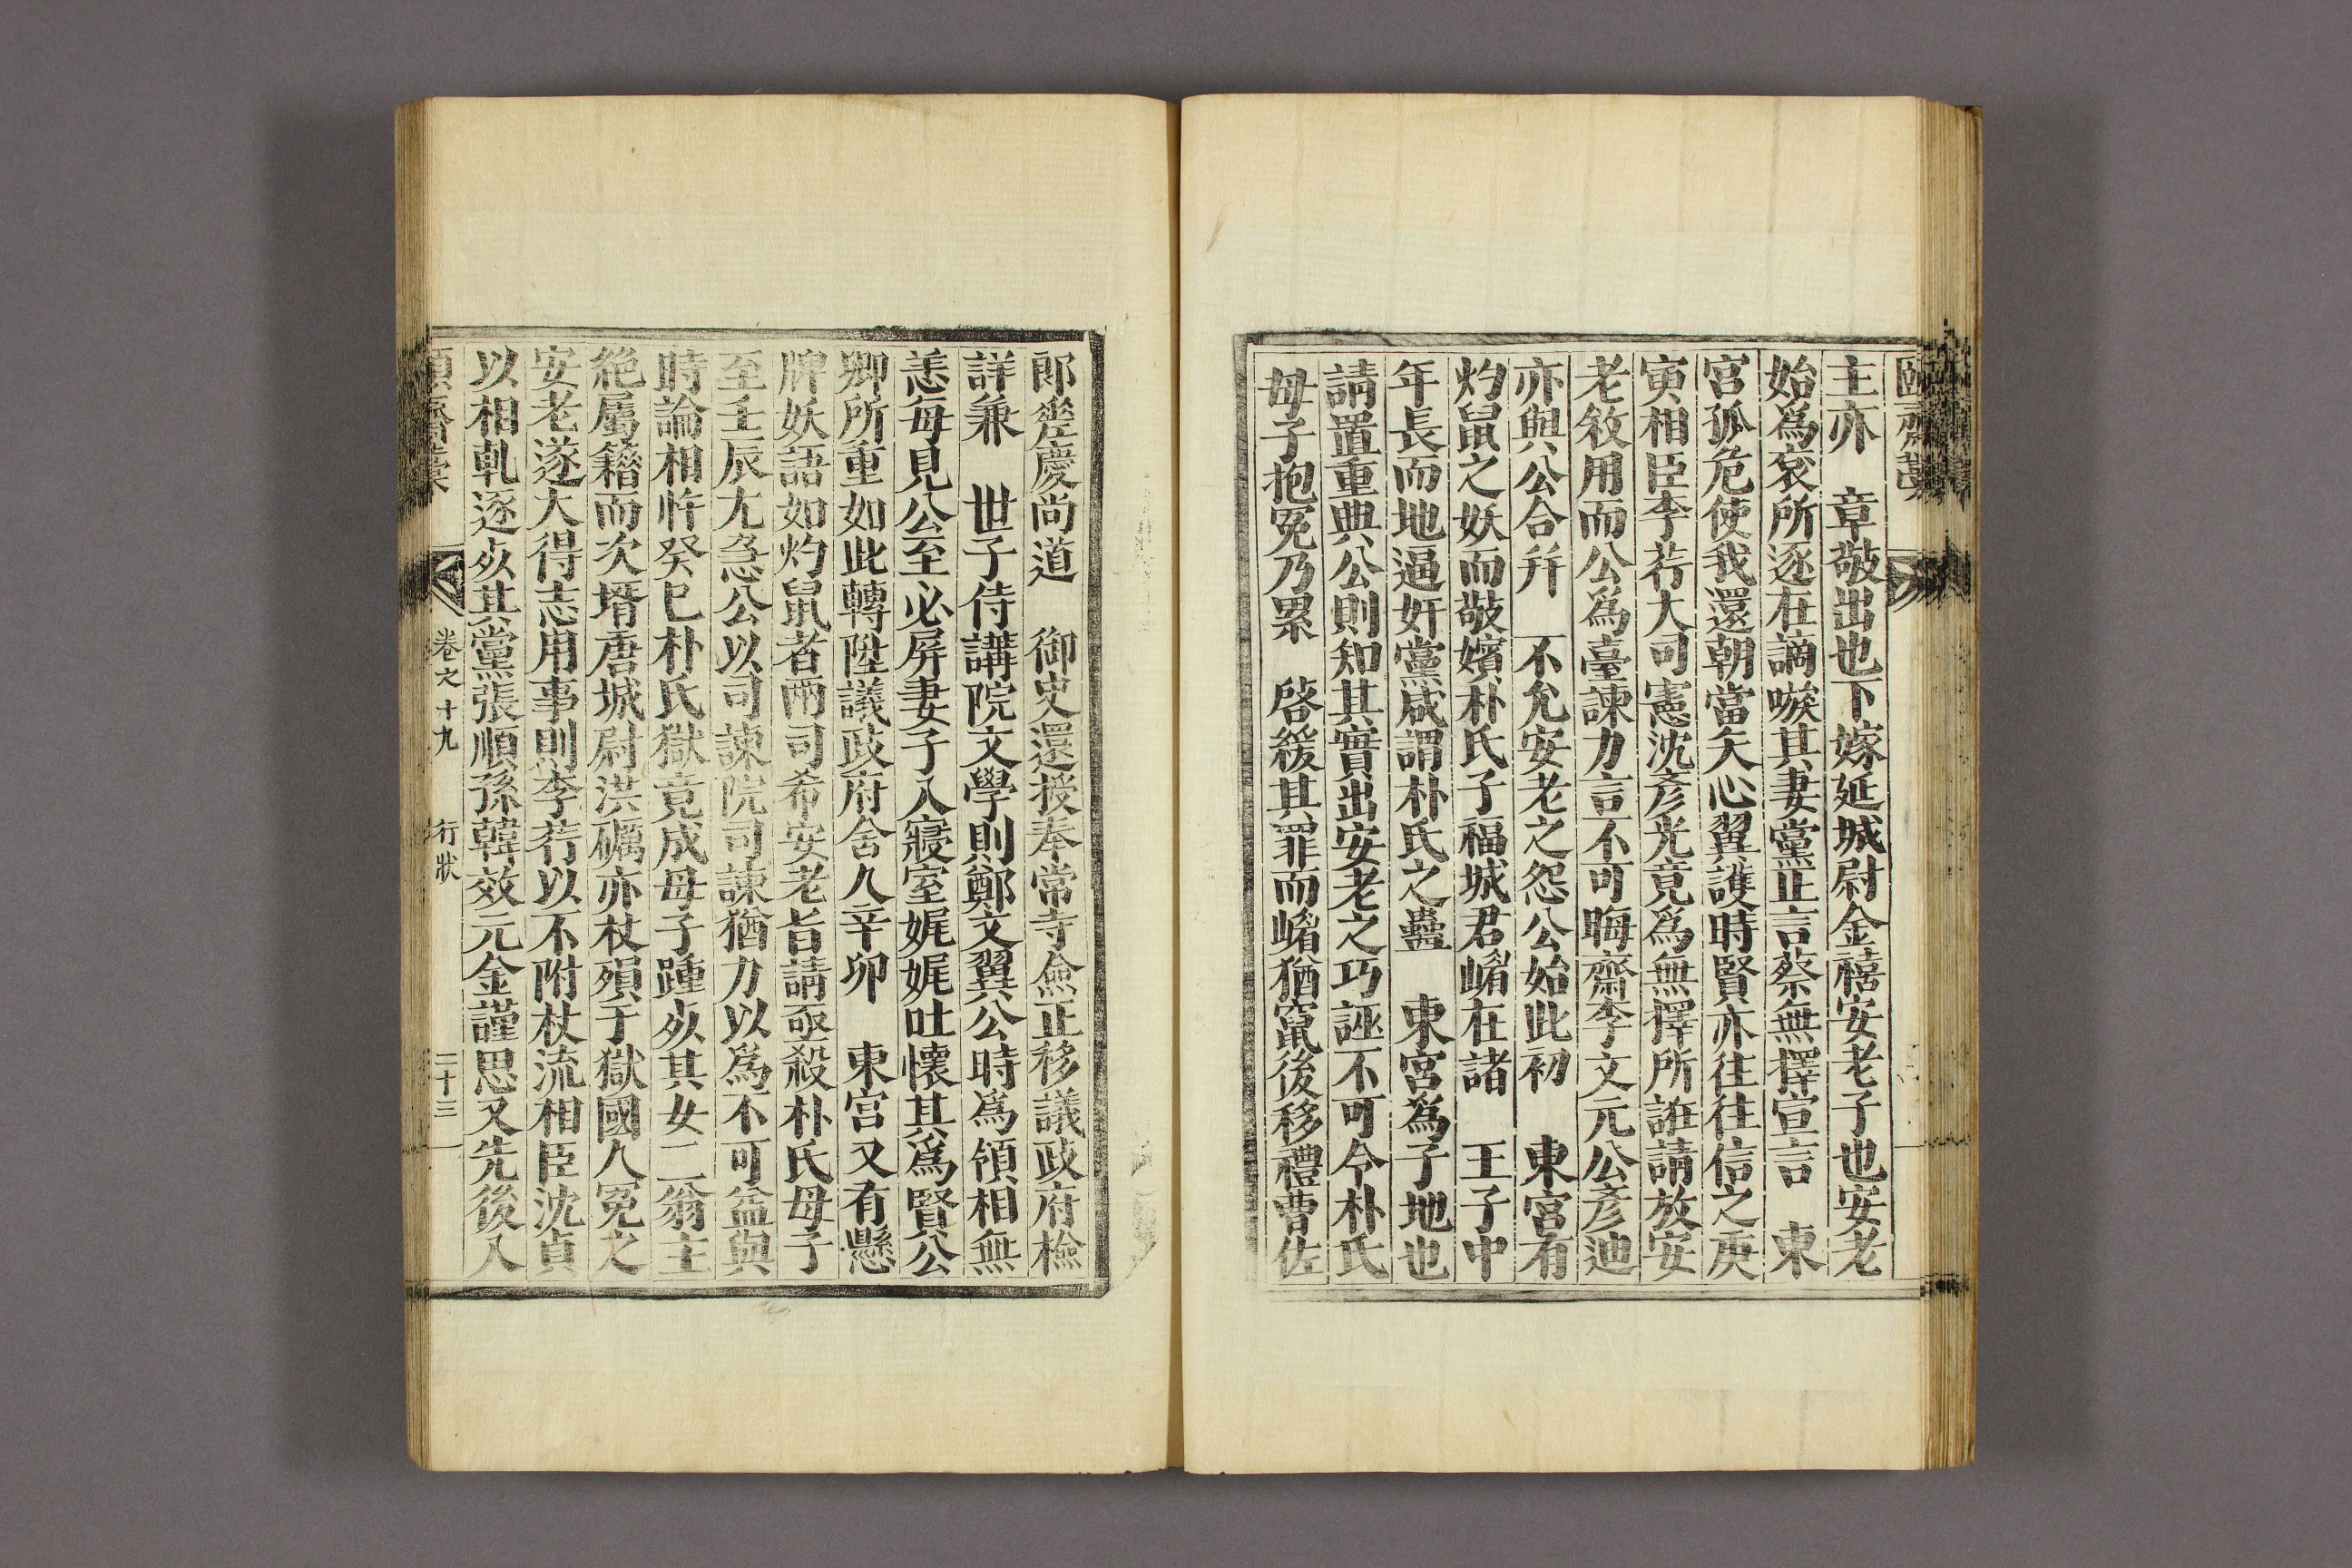 主亦 章敬出也下嫁延城尉金禧安老子也安老
始爲袞所逐在謫嗾其妻黨正言蔡無擇宣言 東
宮孤危使我還朝當矢心翼護時賢亦往往信之庚
寅相臣李荇大司憲沈彥光竟爲無擇所誑請放安
老敘用而公爲臺諫力言不可晦齋李文元公彥迪
亦與公合幷 不允安老之怨公始此初 東宮有
灼鼠之妖而敬嬪朴氏子福城君嵋在諸 王子中
年長而地逼奸黨咸謂朴氏之蠱 東宮爲子地也
請置重典公則知其實出安老之巧誣不可令朴氏
母子抱冤乃累 啓緩其罪而嵋猶竄後移禮曹佐
郞差慶尙道 御史還授奉常寺僉正移議政府檢
詳兼 世子侍講院文學則鄭文翼公時爲領相無
恙每見公至必屛妻子入寢室娓娓吐懷其爲賢公
卿所重如此轉陞議政府舍人辛卯 東宮又有懸
牌妖語如灼鼠者兩司希安老旨請亟殺朴氏母子
至壬辰尤急公以司諫院司諫猶力以爲不可益與
時論相忤癸巳朴氏獄竟成母子踵死其女二翁主
絶屬籍而次壻唐城尉洪礪亦杖殞于獄國人冤之
安老遂大得志用事則李荇以不附杖流相臣沈貞
以相軋逐死其黨張順孫韓效元金謹思又先後入
頤齋藁 卷之十九 行狀 二十三